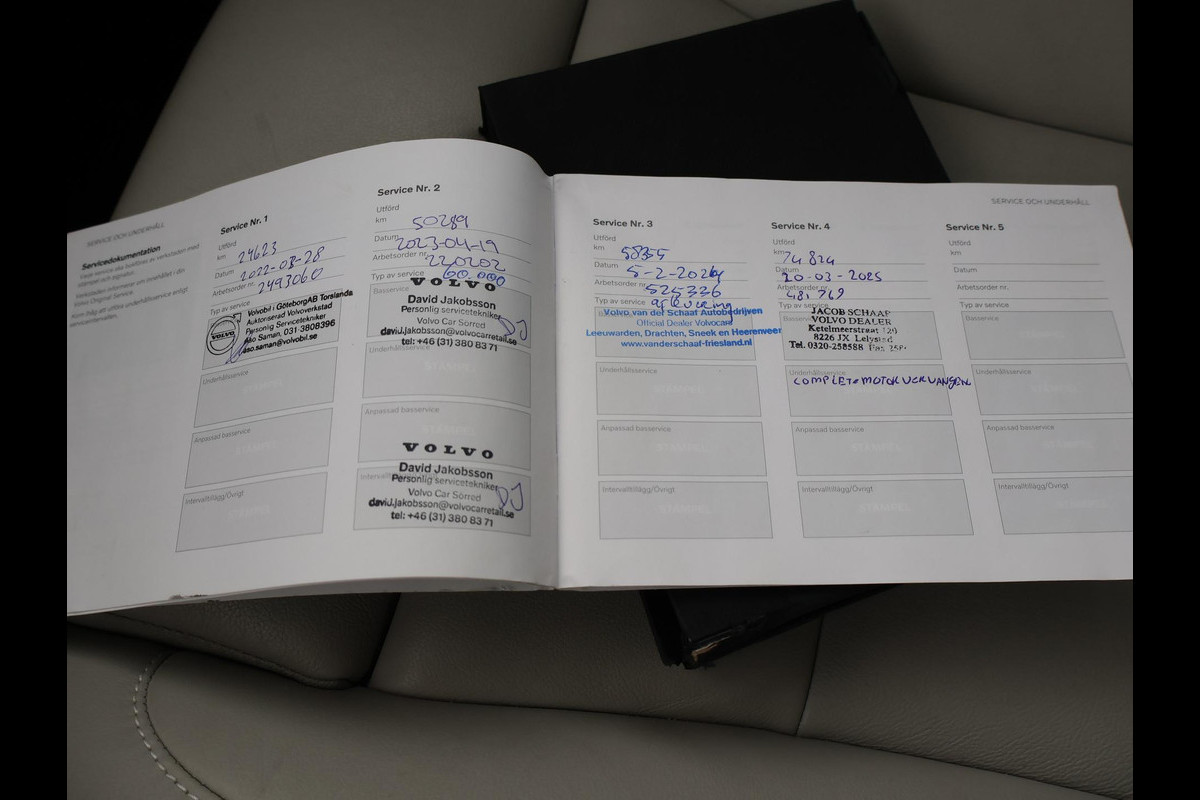 SERVICE OCH UNDERHÅLL
Servicedokumentation
Varje service ska bekräftas av verkstaden med
stämpel och signatur.
Verkstaden informerar om innehållet i din
Volvo Original Service.
Kom ihåg att utföra underhållsservice enligt
serviceintervallen.
Service Nr. 1
Utförd
km 24623
Datum 2022-08-28
Arbetsorder nr. 2493060
Typ av service
VOLVO
Volvobil i GöteborgAB Torslanda
Auktoriserad Volvoverkstad
Personlig Servicetekniker
Aso Saman, 031-3808396
aso.saman@volvobil.se
Underhållsservice
Anpassad basservice
Intervalltillägg/Övrigt
Service Nr. 2
Utförd
km 50289
Datum 2023-04-19
Arbetsorder nr. 220202
Typ av service 60.000
Basservice
VOLVO
David Jakobsson
Personlig servicetekniker
Volvo Car Sörred
david.jakobsson@volvocarretail.se
tel: +46 (31) 380 83 71
DJ
Underhållsservice
Anpassad basservice
VOLVO
David Jakobsson
Personlig servicetekniker
Volvo Car Sörred
david.jakobsson@volvocarretail.se
tel: +46 (31) 380 83 71
DJ
SERVICE OCH UNDERHÅLL
Service Nr. 3
Utförd
km 58355
Datum 5-2-2024
Arbetsorder nr. 525336
Typ av service aflevering
Volvo van der Schaaf Autobedrijven
Official Dealer Volvocars
Leeuwarden, Drachten, Sneek en Heerenveen
www.vanderschaaf-friesland.nl
Underhållsservice
Anpassad basservice
Intervalltillägg/Övrigt
STÄMPEL
Service Nr. 4
Utförd
km 74 824
Datum 20-03-2025
Arbetsorder nr. 481769
Typ av service
JACOB SCHAAP
VOLVO DEALER
Ketelmeerstraat 120
8226 JX Lelystad
Tel. 0320-258588 Fax
Underhållsservice
COMPLETE MOTOR VERVANGEN
Anpassad basservice
Intervalltillägg/Övrigt
STÄMPEL
Service Nr. 5
Utförd
km
Datum
Arbetsorder nr.
Typ av service
Basservice
Underhållsservice
Anpassad basservice
Intervalltillägg/Övrigt